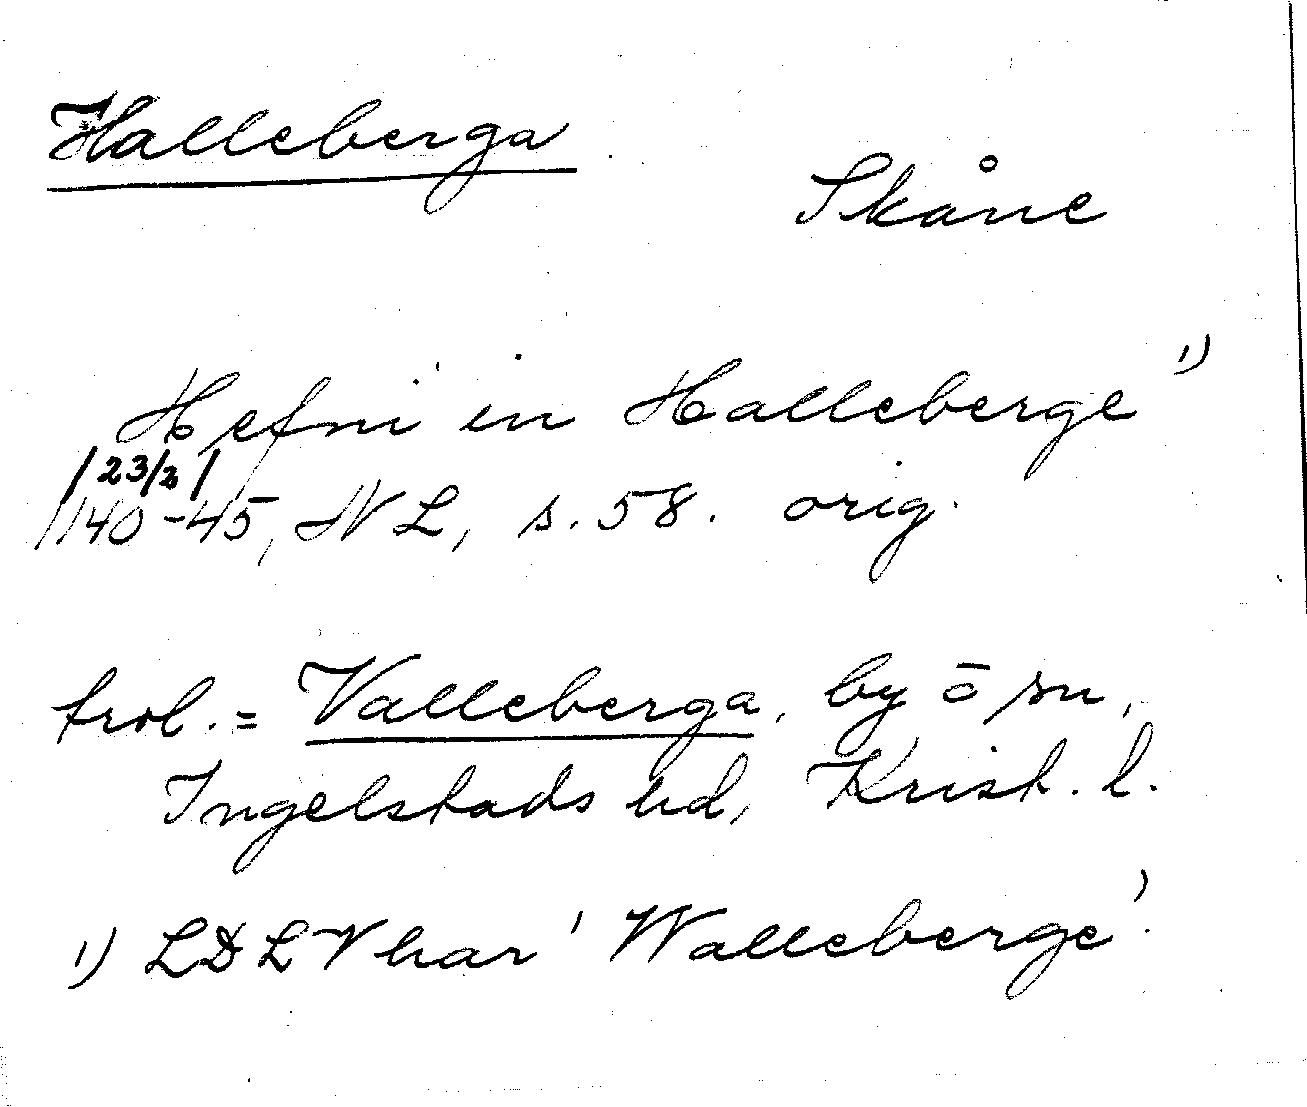 Halleberga
Skåne
Hefni in Halleberge 1)
/23/3/
1140-45, NL, s. 58. orig.
trol. = Valleberga, by o sn,
Ingelstads hd, Krist. l.
1) LDLV har 'Walleberge'.